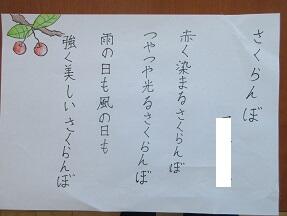 さくらんぼ
赤く染まるさくらんぼ
つやつや光るさくらんぼ
雨の日も風の日も
強く美しいさくらんぼ